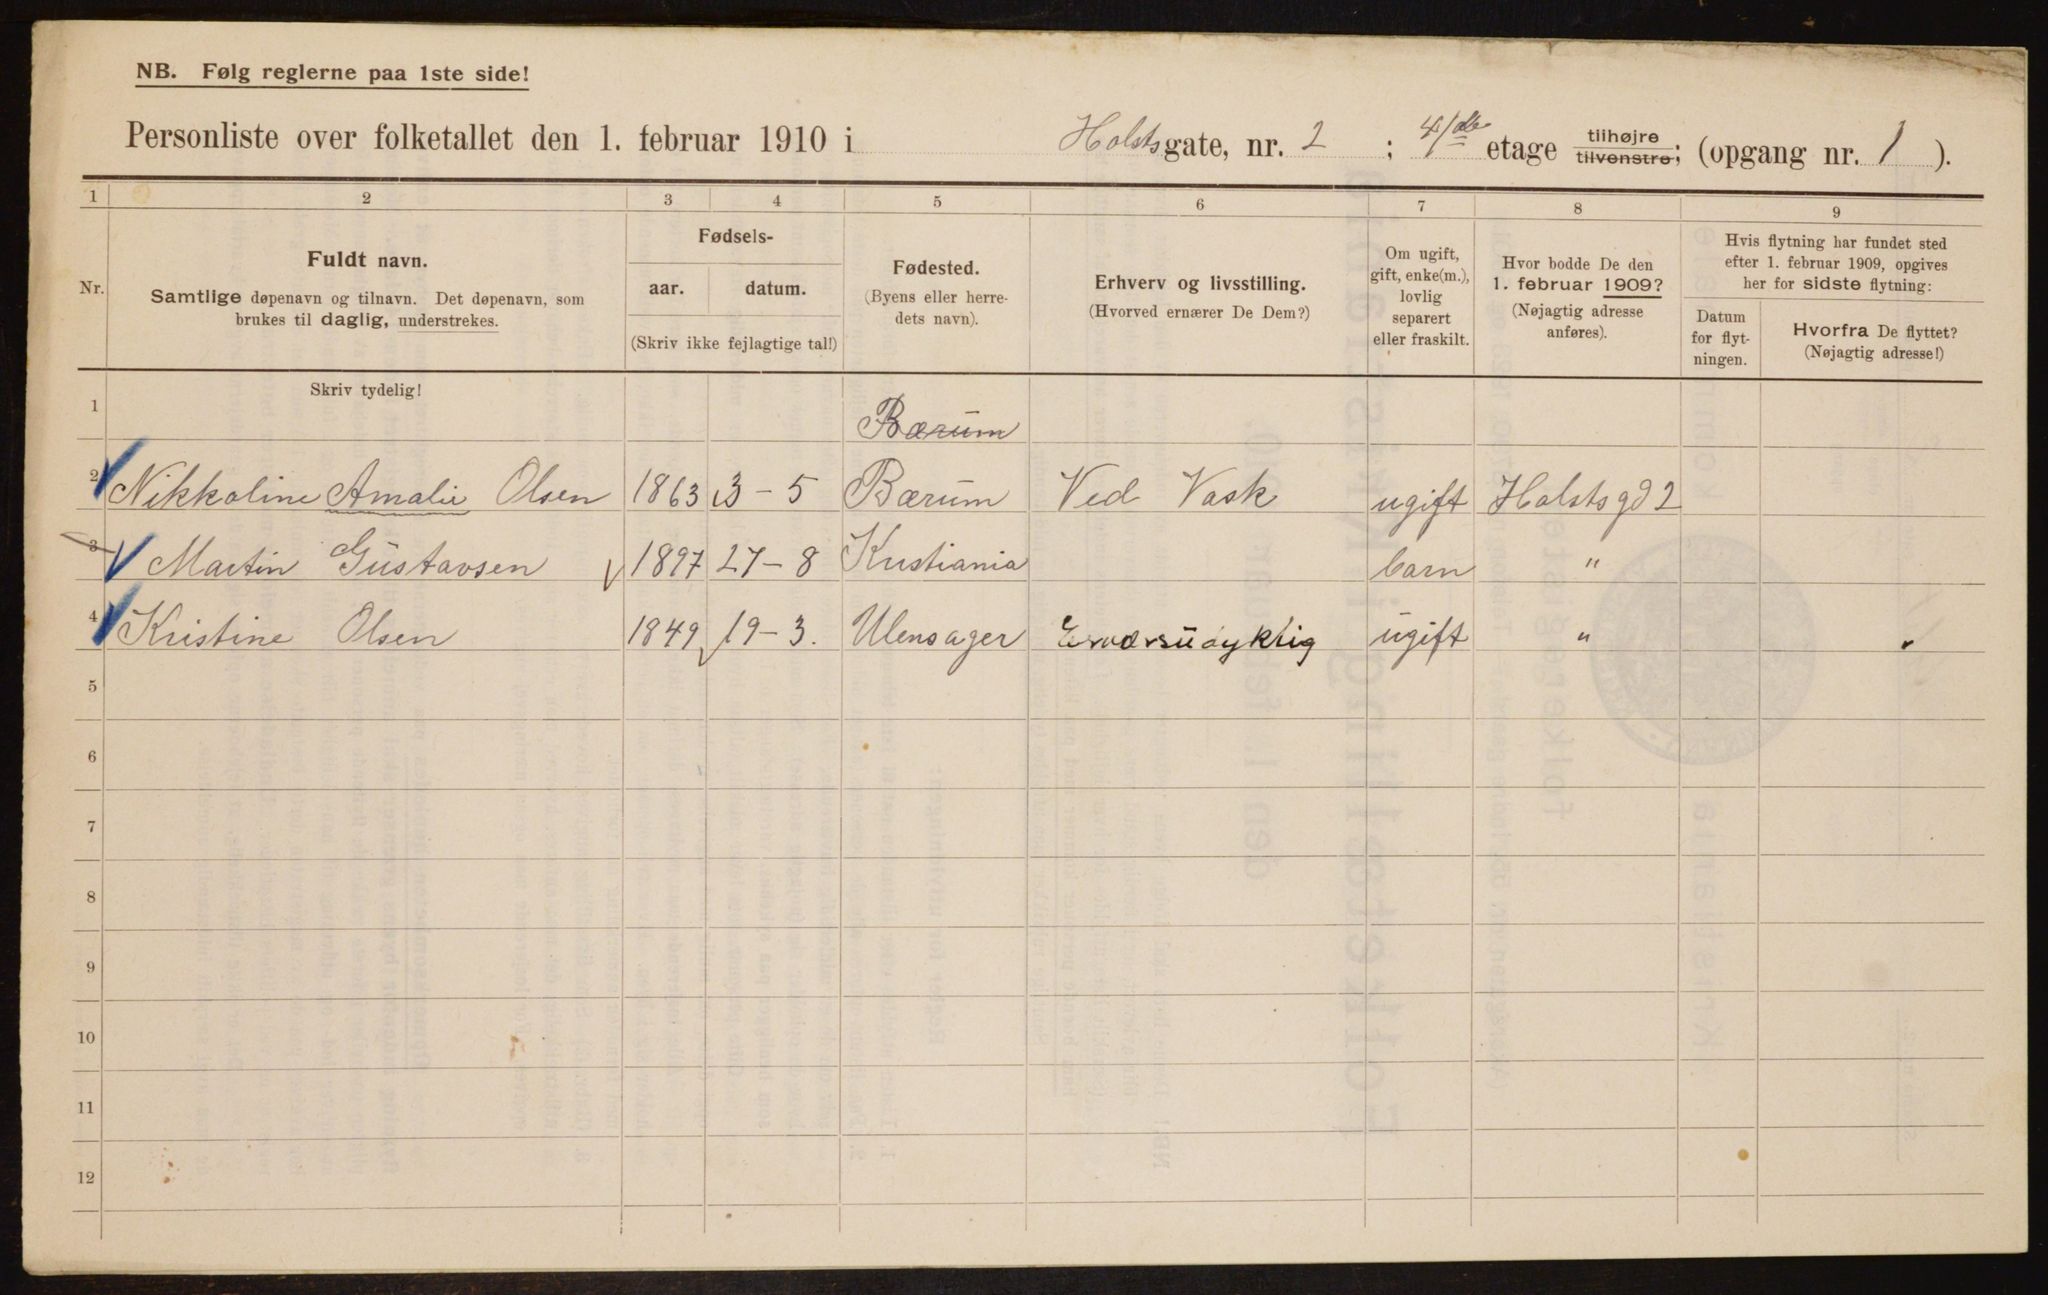 NB. Følg reglerne paa 1ste side!
Personliste over folketallet den 1. februar 1910 i Holstsgate, nr. 2 ; 4/de etage tilhøjre tilvenstre; (opgang nr. 1 ).
1 2 3 4 5 6 7 8 9
Nr.
Fuldt navn.
Samtlige døpenavn og tilnavn. Det døpenavn, som
brukes til daglig, understrekes.
Fødsels-
aar. datum.
(Skriv ikke fejlagtige tal!)
Fødested.
(Byens eller herre-
dets navn).
Erhverv og livsstilling.
(Hvorved ernærer De Dem?)
Om ugift,
gift, enke(m.),
lovlig
separert
eller fraskilt.
Hvor bodde De den
1. februar 1909?
(Nøjagtig adresse
anføres).
Hvis flytning har fundet sted
efter 1. februar 1909, opgives
her for sidste flytning:
Datum
for flyt-
ningen.
Hvorfra De flyttet?
(Nøjagtig adresse!)
Skriv tydelig!
1 Bærum
2 Nikkoline Amalie Olsen 1863 3 - 5 Bærum Ved Vask ugift Holstsgd 2
3 Martin Gustavsen 1897 27 - 8 Kristiania barn "
4 Kristine Olsen 1849 19 - 3. Ulensager ugift "
5
6
7
8
9
10
11
12